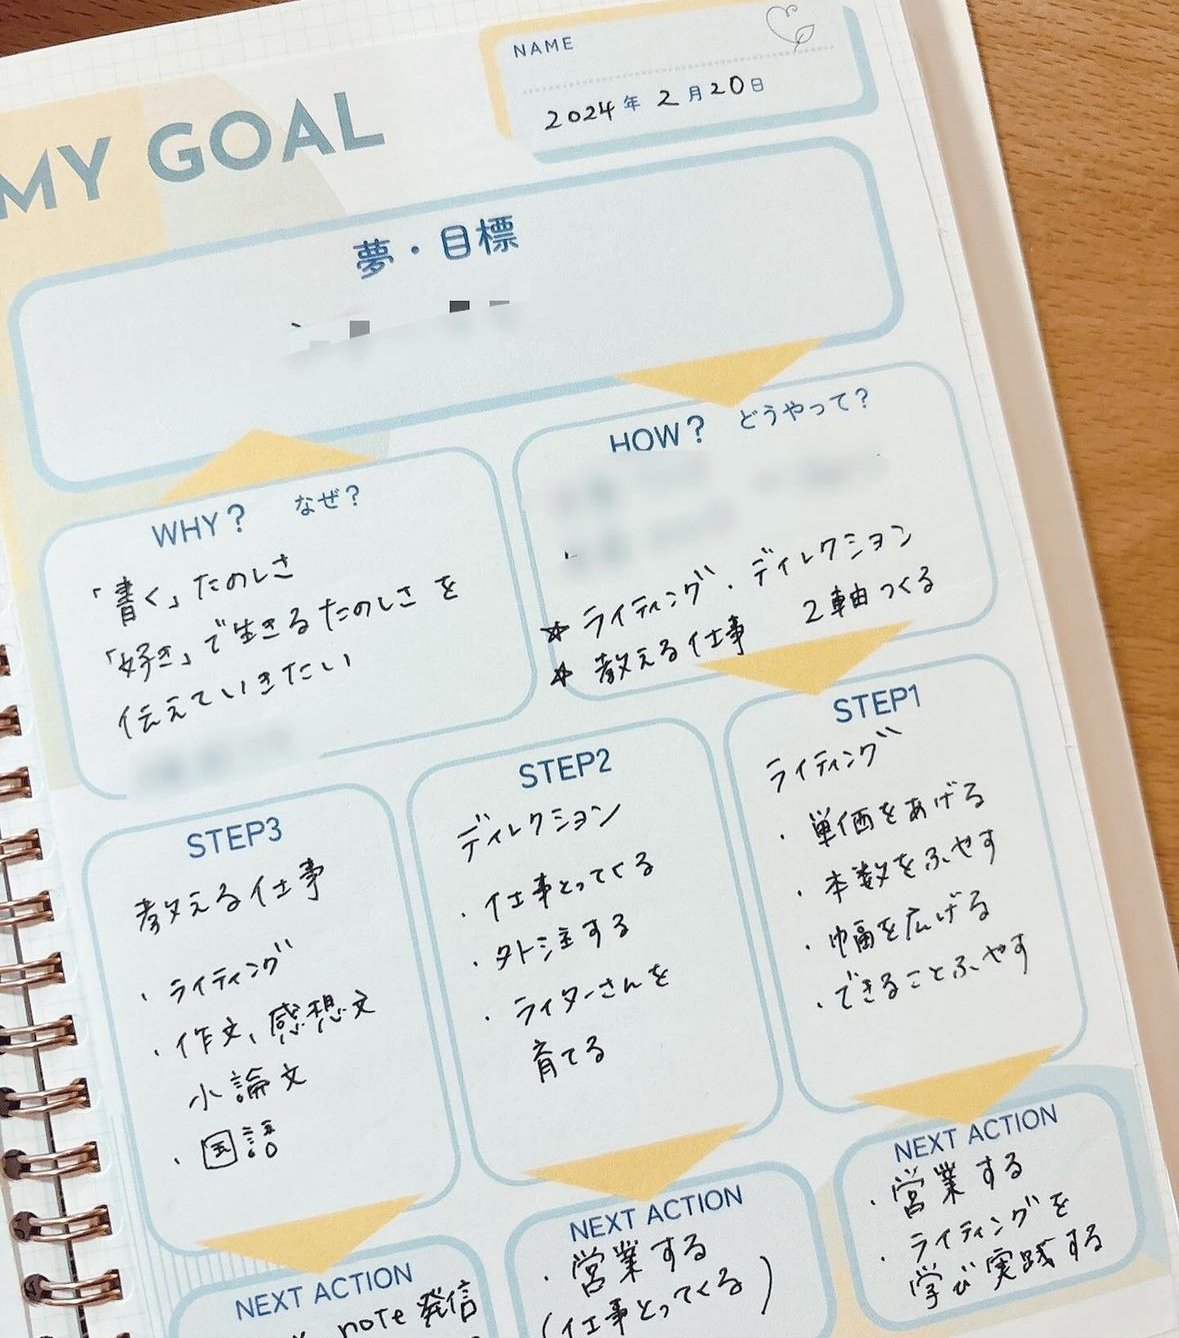 NAME
2024年 2月20日
MY GOAL
夢・目標
WHY? なぜ?
「書く」たのしさ
「好き」で生きるたのしさを
伝えていきたい
HOW? どうやって?
☆ ライティング・ディレクション
☆ 教える仕事 2軸つくる
STEP1
ライティング
・単価をあげる
・本数をふやす
・幅を広げる
・できることふやす
NEXT ACTION
・営業する
・ライティングを
学び実践する
STEP2
ディレクション
・仕事とってくる
・外注する
・ライターさんを
育てる
NEXT ACTION
・営業する
(仕事とってくる)
STEP3
教える仕事
・ライティング
・作文、感想文
小論文
・国語
NEXT ACTION
note発信